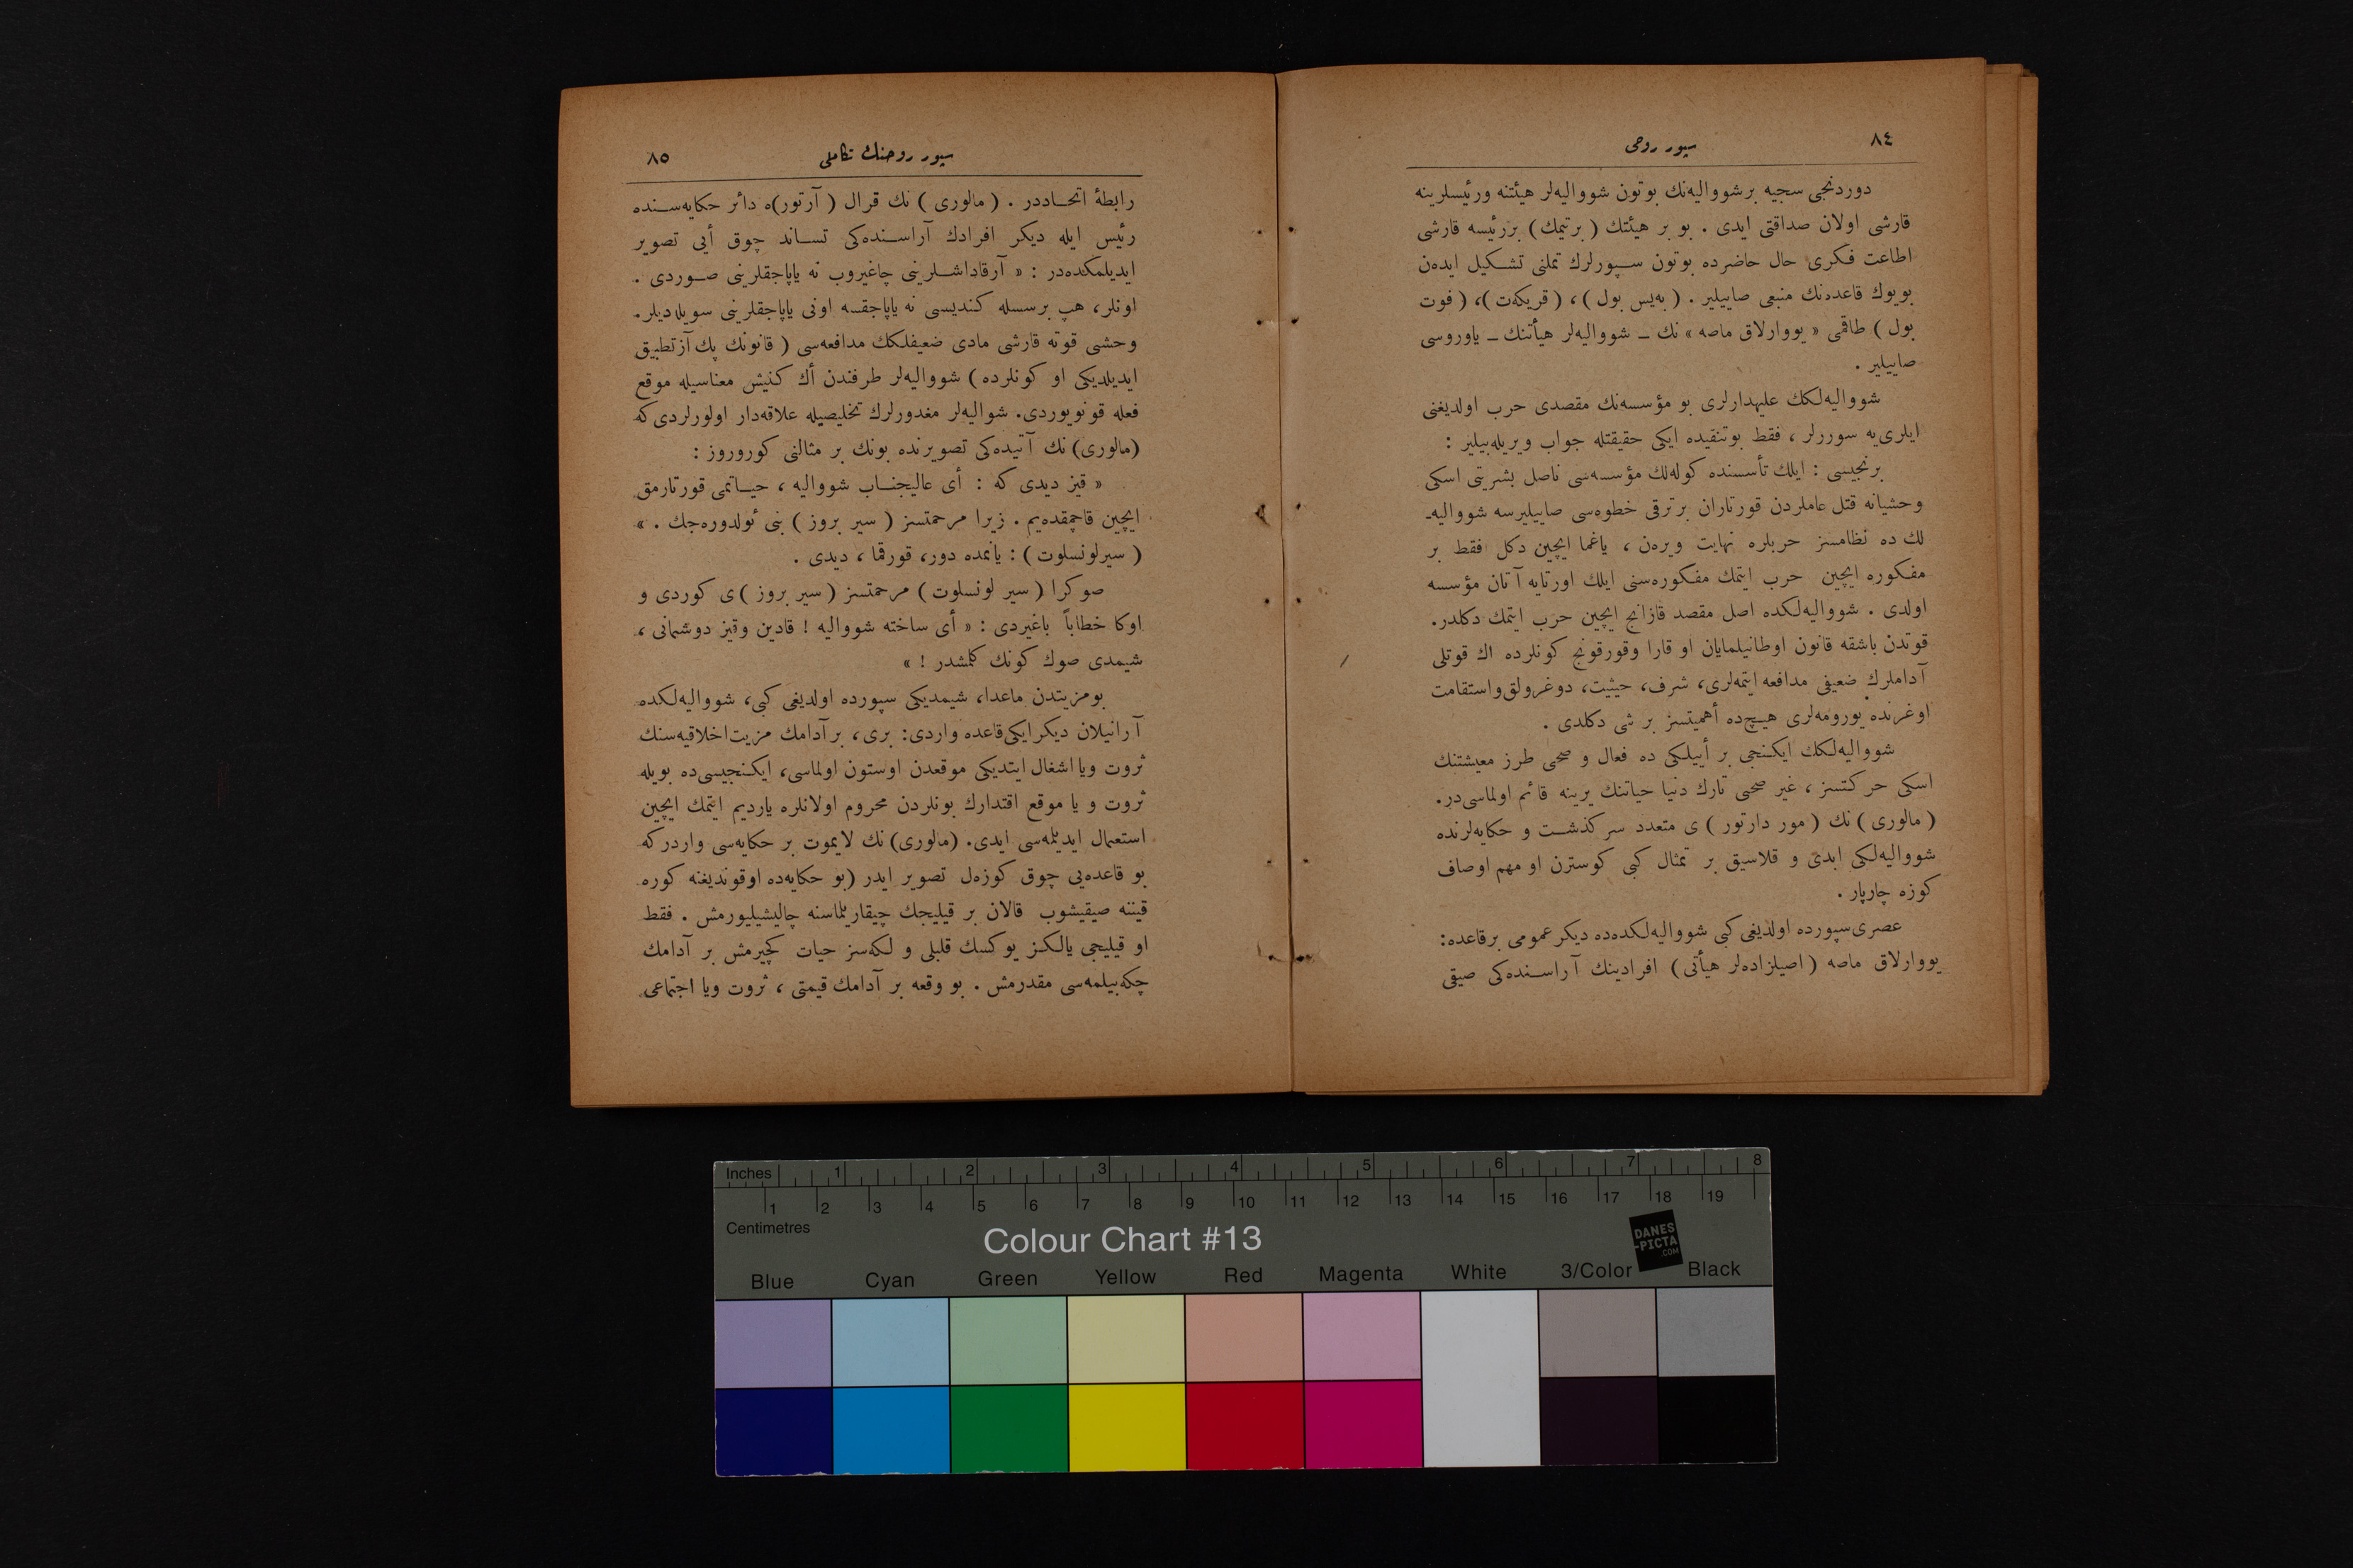 ٨٤
سپور روحی
دوردنجی سجیه برشووالیه‌نك بوتون شووالیه‌لر هیئتنه ورئیسلرینه
قارشی اولان صداقتی ایدی . بو بر هیئتك ( برتیمك ) بررئیسه قارشی
اطاعت فکری حال حاضرده بوتون سپورلرك تملنی تشکیل ایده‌ن
بویوك قاعده‌نك منبعی صاییلیر . ( به‌یس بول ) ، ( قریکه‌ت ) ، ( فوت
بول ) طاقمی « یووارلاق ماصه » نك ــ شووالیه‌لر هیأتنك ــ یاوروسی
صاییلیر .
شووالیه‌لکك علیهدارلری بو مؤسسه‌نك مقصدی حرب اولدیغنی
ایلری‌یه سوررلر ، فقط بوتنقیده ایکی حقیقتله جواب ویریله‌بیلیر :
برنجیسی : ایلك تأسسنده کوله‌لك مؤسسه‌سی ناصل بشریتی اسکی
وحشیانه قتل عاملردن قورتاران برترقی خطوه‌سی صاییلیرسه شووالیه‌ـ
لك ده نظامسز حربلره نهایت ویره‌ن ، یاغما ایچین دکل فقط بر
مفکوره ایچین حرب ایتمك مفکوره‌سنی ایلك اورتایه آتان مؤسسه
اولدی . شووالیه‌لکده اصل مقصد قازانج ایچین حرب ایتمك دکلدر.
قوتدن باشقه قانون اوطانیلمایان او قارا وقورقونج کونلرده اك قوتلی
آداملرك ضعیفی مدافعه ایتمه‌لری، شرف، حیثیت، دوغرولق‌واستقامت
اوغرنده یورومه‌لری هیچ‌ده أهمیتسز بر شی دکلدی .
شووالیه‌لکك ایکنجی بر أییلکی ده فعال و صحی طرز معیشتنك
اسکی حرکتسز ، غیر صحی تارك دنیا حیاتنك یرینه قائم اولماسی‌در.
( مالوری ) نك ( مور دارتور ) ی متعدد سرکذشت و حکایه‌لرنده
شووالیه‌لکی ابدی و قلاسیق بر تمثال کبی کوسترن او مهم اوصاف
کوزه چارپار .
عصری‌سپورده اولدیغی کبی شووالیه‌لکده‌ده دیکر عمومی برقاعده:
یووارلاق ماصه ( اصیلزاده‌لر هیأتی ) افرادینك آراسنده‌کی صیقی
سپور روحنك تکاملی
٨٥
رابطهٔ اتحاددر . ( مالوری ) نك قرال ( آرتور)ه دائر حکایه‌سنده
رئیس ایله دیکر افرادك آراسنده‌کی تساند چوق أیی تصویر
ایدیلمکده‌در : « آرقاداشلرینی چاغیروب نه یاپاجقلرینی صوردی .
اونلر، هپ برسسله کندیسی نه یاپاجقسه اونی یاپاجقلرینی سویله‌دیلر.
وحشی قوته قارشی مادی ضعیفلکك مدافعه‌سی ( قانونك پك آزتطبیق
ایدیلدیکی او کونلرده ) شووالیه‌لر طرفندن أك کنیش معناسیله موقع
فعله قونویوردی. شوالیه‌لر مغدورلرك تخلیصیله علاقه‌دار اولورلردی‌که
(مالوری) نك آتیده‌کی تصویرنده بونك بر مثالنی کوروروز :
« قیز دیدی که : أی عالیجناب شووالیه ، حیاتمی قورتارمق
ایچین قاچمقده‌یم . زیرا مرحمتسز ( سیر بروز ) بنی ئولدوره‌جك . »
( سیرلونسلوت ) : یانمده دور، قورقما ، دیدی .
صوکرا ( سیر لونسلوت ) مرحمتسز ( سیر بروز ) ی کوردی و
اوکا خطاباً باغیردی : « أی ساخته شووالیه ! قادین وقیز دوشمانی ،
شیمدی صوك کونك کلمشدر ! »
بومزیتدن ماعدا، شیمدیکی سپورده اولدیغی کبی، شووالیه‌لکده
آرانیلان دیکرایکی‌قاعده واردی: بری، برآدامك مزیت‌اخلاقیه‌سنك
ثروت ویا اشغال ایتدیکی موقعدن اوستون اولماسی، ایکنجیسی‌ده بویله
ثروت و یا موقع اقتدارك بونلردن محروم اولانلره یاردیم ایتمك ایچین
استعمال ایدیلمه‌سی ایدی. (مالوری) نك لایموت بر حکایه‌سی واردرکه
بو قاعده‌یی چوق کوزه‌ل تصویر ایدر (بو حکایه‌ده اوقوندیغنه کوره
قیننه صیقیشوب قالان بر قیلیجك چیقاریلماسنه چالیشیلیورمش . فقط
او قیلیجی یالکز یوکسك قلبلی و لکه‌سز حیات کچیرمش بر آدامك
چکه‌بیلمه‌سی مقدرمش . بو وقعه بر آدامك قیمتی ، ثروت ویا اجتماعی
Inches 1 2 3 4 5 6 7 8
1 2 3 4 5 6 7 8 9 10 11 12 13 14 15 16 17 18 19
Centimetres
Colour Chart #13
DANES
-PICTA
.COM
Blue Cyan Green Yellow Red Magenta White 3/Color Black